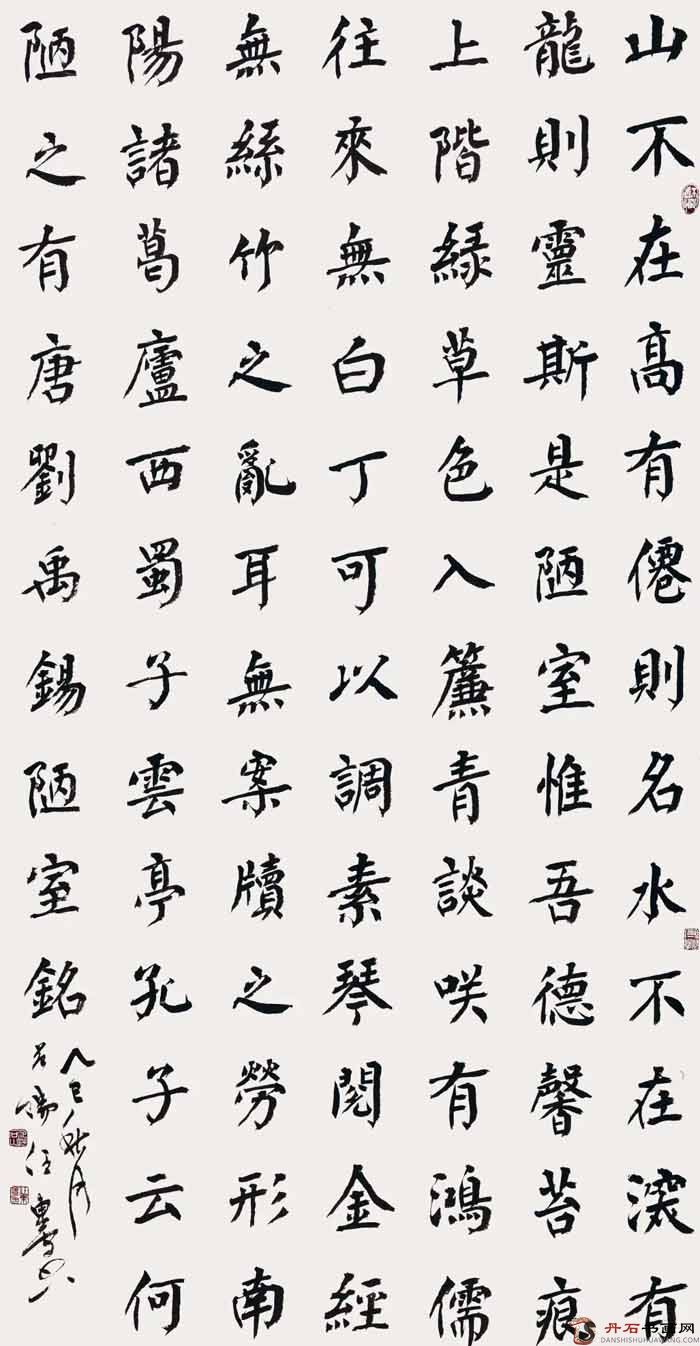 山不在高有僊則名水不在深有
龍則靈斯是陋室惟吾德馨苔痕
上階緑草色入簾青談咲有鴻儒
往來無白丁可以調素琴閲金經
無絲竹之亂耳無案牘之勞形南
陽諸葛廬西蜀子雲亭孔子云何
陋之有唐劉禹錫陋室銘
丹石书画网
DANSHISHUHUAWANG.COM